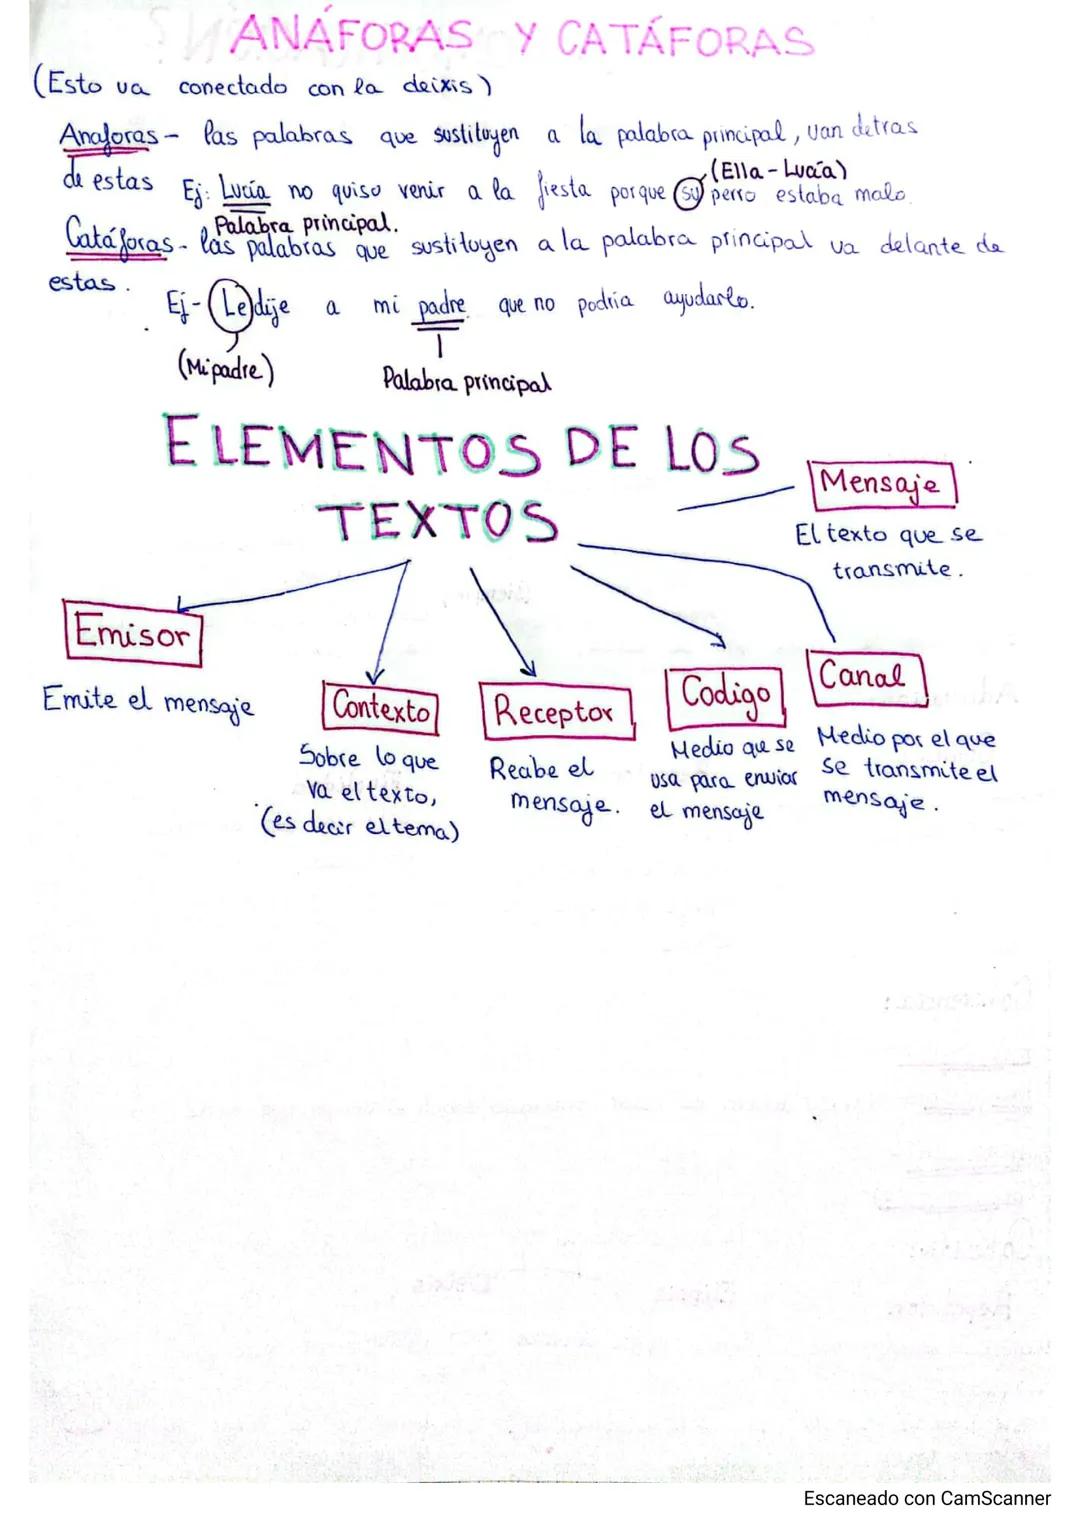 ANÁFORAS Y CATÁFORAS
(Esto va conectado con la deixis)
Anaforas - las palabras que sustituyen a la palabra principal, van detras
de estas
(Ella - Lucía)
Ej: Lucía no quiso venir a la fiesta porque su perro estaba malo.
Palabra principal.
Catáforas - las palabras que sustituyen a la palabra principal va delante de
estas.
Ej - Le dije a mi padre que no podria ayudarlo.
(Mi padre)
Palabra principal
ELEMENTOS DE LOS
TEXTOS
Mensaje
El texto que se
transmite.
Emisor
Emite el mensaje
Contexto
Sobre lo que
va el texto,
(es decir el tema)
Receptor
Reabe el
mensaje.
Codigo
Medio que se
usa para enviar
el mensaje
Canal
Medio por el que
se transmite el
mensaje.
Escaneado con CamScanner